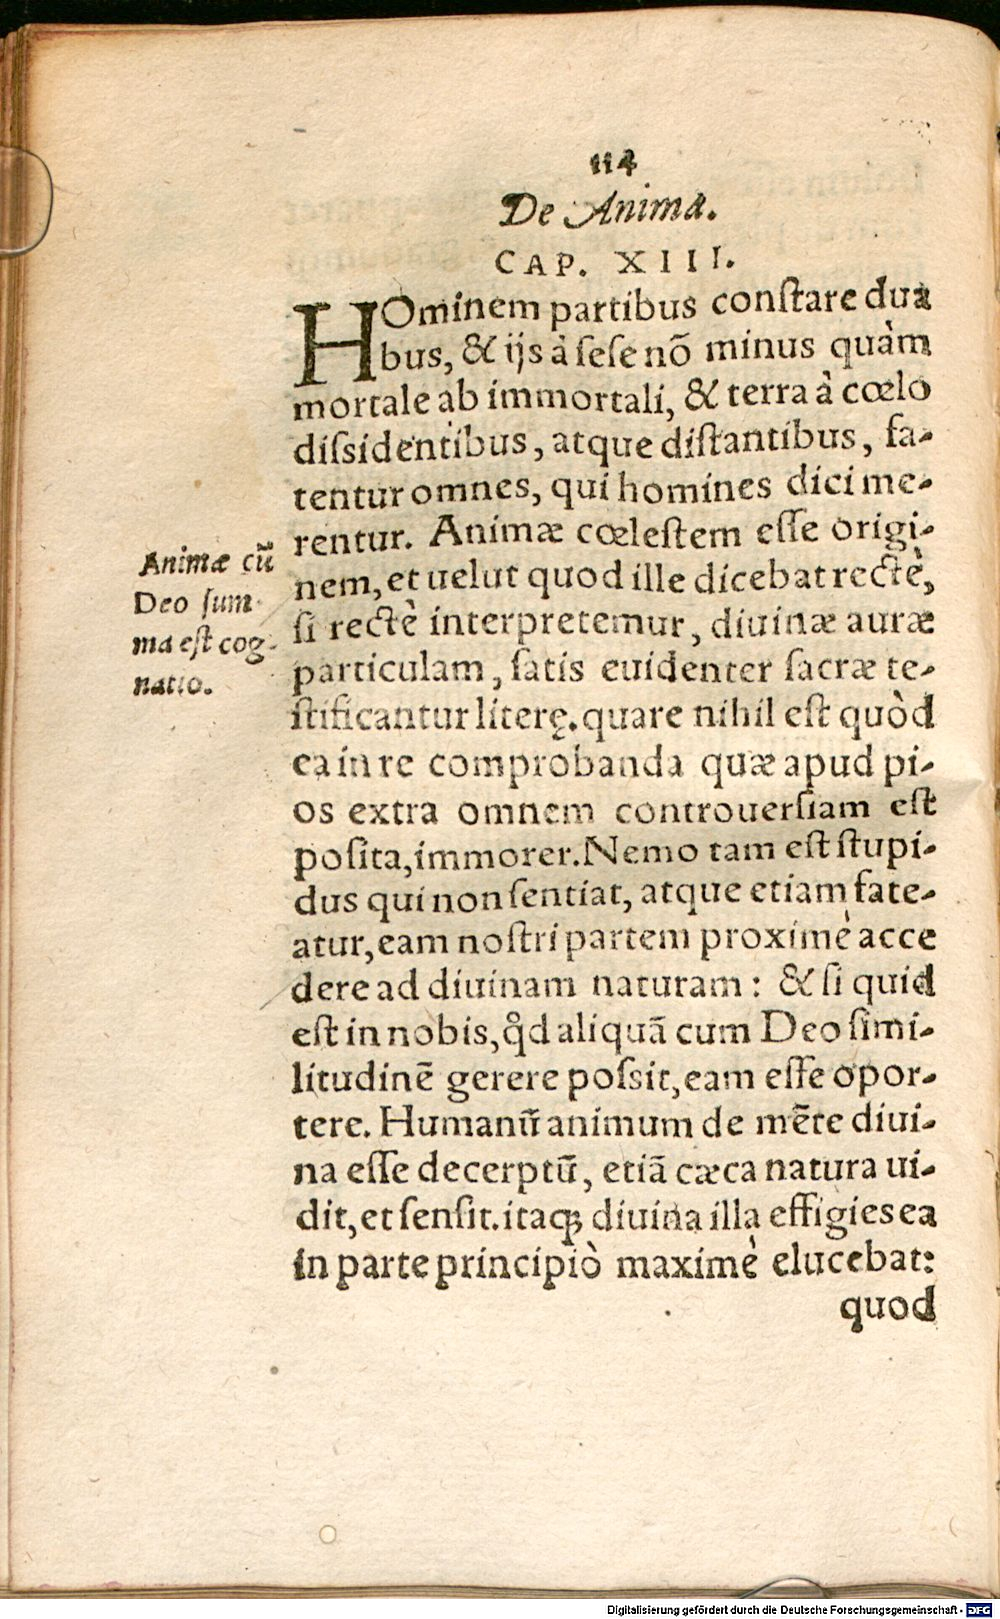 114
De Anima.
CAP. XIII.
HOminem partibus conſtare dua
bus, & ijs à ſeſe nõ minus quàm
mortale ab immortali, & terra à cœlo
diſsidentibus, atque diſtantibus, fa-
tentur omnes, qui homines dici me-
rentur. Animæ cœleſtem eſſe origi-
nem, et uelut quod ille dicebat rectè,
ſi rectè interpretemur, diuinæ auræ
particulam, ſatis euidenter ſacræ te-
ſtificantur literę. quare nihil eſt quòd
ea in re comprobanda quæ apud pi-
os extra omnem controuerſiam eſt
poſita, immorer. Nemo tam eſt ſtupi-
dus qui non ſentiat, atque etiam fate-
atur, eam noſtri partem proximè acce
dere ad diuinam naturam: & ſi quid
eſt in nobis, qd̊ aliquã cum Deo ſimi-
litudinẽ gerere poſsit, eam eſſe opor-
tere. Humanũ animum de mẽte diui-
na eſſe decerptũ, etiã cæca natura ui-
dit, et ſenſit. itaqꝫ diuina illa effigies ea
in parte principiò maximè elucebat:
quod
Animæ cũ
Deo ſum
ma eſt cog-
natio.
Digitalisierung gefördert durch die Deutsche Forschungsgemeinschaft - DFG